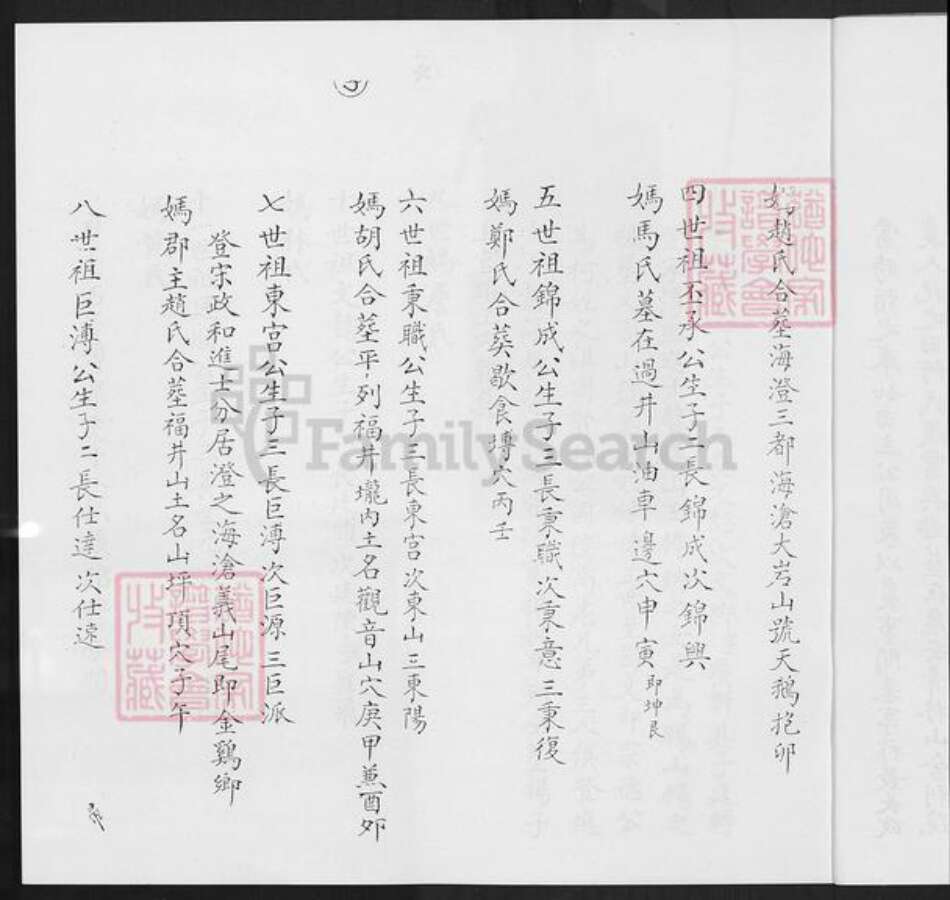 媽趙氏合塟海澄三都海滄大岩山號天鵝抱卵
四世祖丕承公生子二長錦成次錦興
媽馬氏墓在過井山油車邊穴申寅即坤艮
五世祖錦成公生子三長秉職次秉意三秉復
媽鄭氏合葵歇食塼穴丙壬
六世祖秉職公生子三長東宮次東山三東陽
媽胡氏合塟平列福井壠內土名觀音山穴庚甲兼酉卯
七世祖東宮公生子三長巨溥次巨源三巨派
登宋政和進士分居澄之海滄義山尾即金鷄鄉
媽郡主趙氏合塟福井山土名山坪項穴子午
八世祖巨溥公生子二長仕達次仕遠
FamilySearch